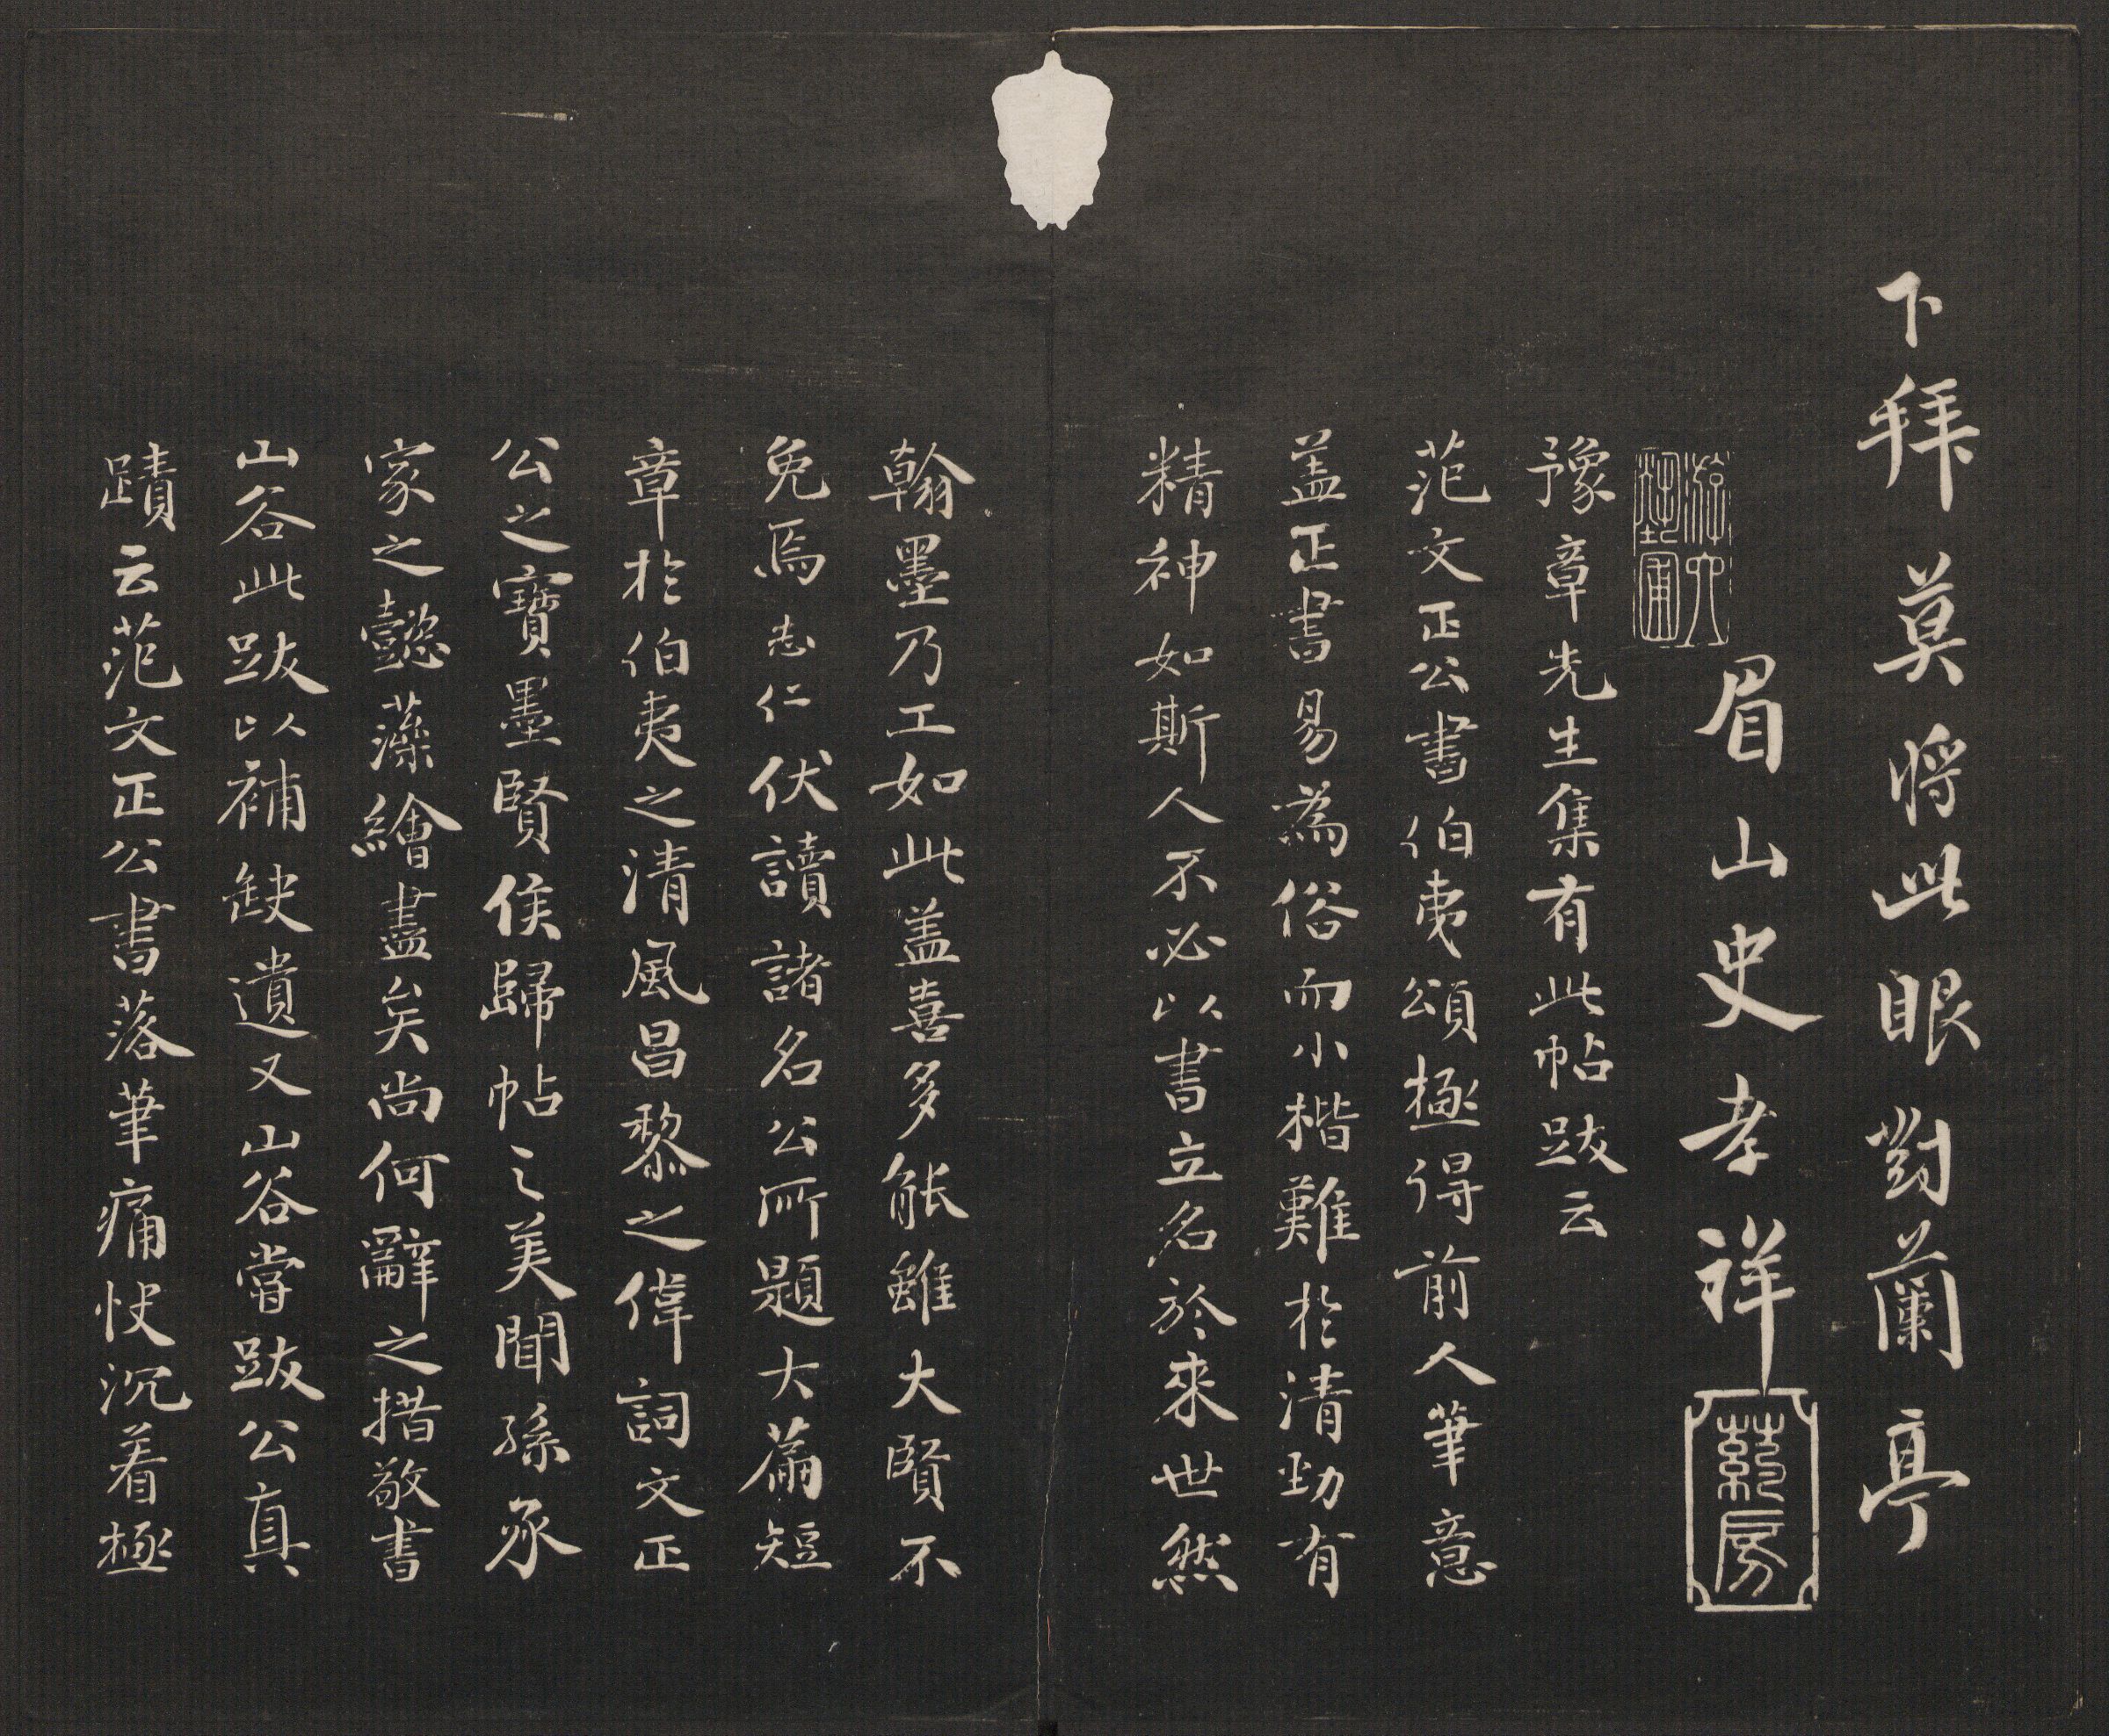 下拜莫將此眼對蘭亭
眉山史孝祥
葯房
豫章先生集有此帖跋云
范文正公書伯夷頌極得前人筆意
盖正書易為俗而小楷難於清勁有
精神如斯人不必以書立名於來世然
翰墨乃工如此盖喜多能雖大賢不
免焉志仁伏讀諸名公所題大篇短
章於伯夷之清風昌黎之偉詞文正
公之寶墨賢侯歸帖之美聞孫承
家之懿藻繪盡矣尚何辭之措敬書
山谷此跋以補缺遺又山谷嘗跋公真
蹟云范文正公書落筆痛快沉着極